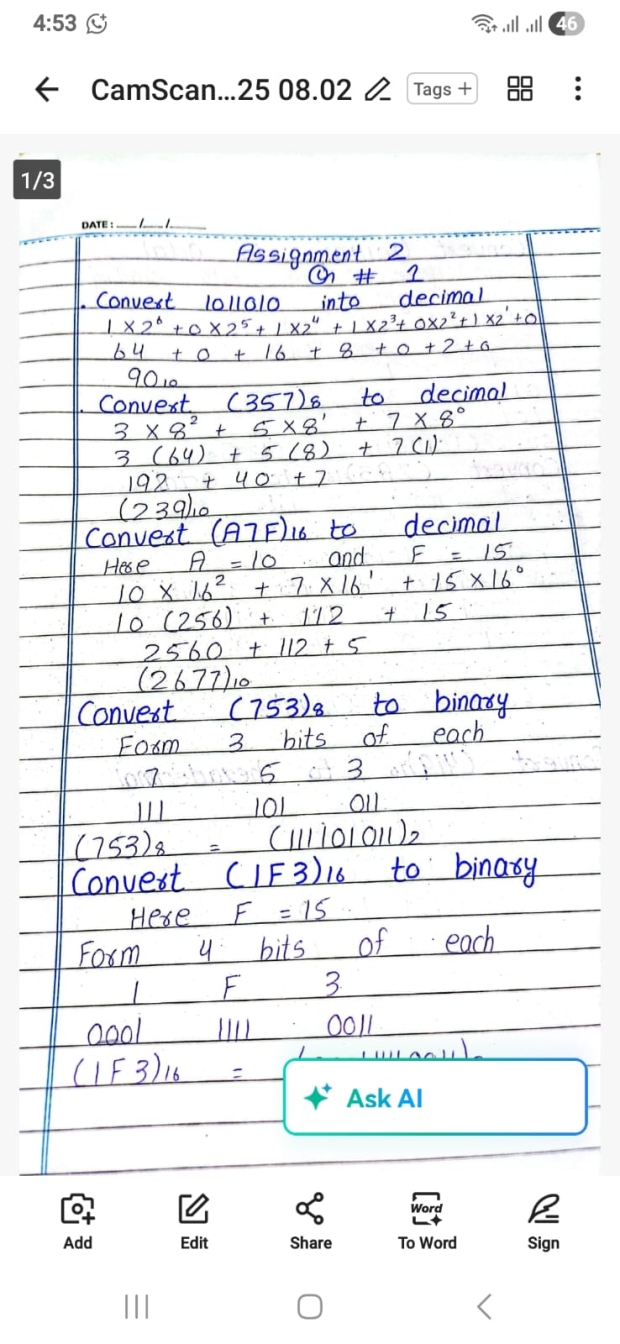 4:53
46
CamScan...25 08.02
Tags +
1/3
DATE: __/__/__
Assignment 2
Q # 1
. Convert 1011010 into decimal
1 x 2⁶ + 0 x 2⁵ + 1 x 2⁴ + 1 x 2³ + 0x2² + 1 x 2¹ + 0
64 + 0 + 16 + 8 + 0 + 2 + 0
90₁₀
. Convert (357)₈ to decimal
3 x 8² + 5 x 8¹ + 7 x 8⁰
3 (64) + 5 (8) + 7 (1)
192 + 40 + 7
(239)₁₀
Convert (A7F)₁₆ to decimal
Here A = 10 and F = 15
10 x 16² + 7 x 16¹ + 15 x 16⁰
10 (256) + 112 + 15
2560 + 112 + 5
(2677)₁₀
Convert (753)₈ to binary
Form 3 bits of each
7 5 3
111 101 011
(753)₈ = (111101011)₂
Convert (1F3)₁₆ to binary
Here F = 15
Form 4 bits of each
1 F 3
0001 1111 0011
(1F3)₁₆ =
Ask AI
Add
Edit
Share
Word
To Word
Sign